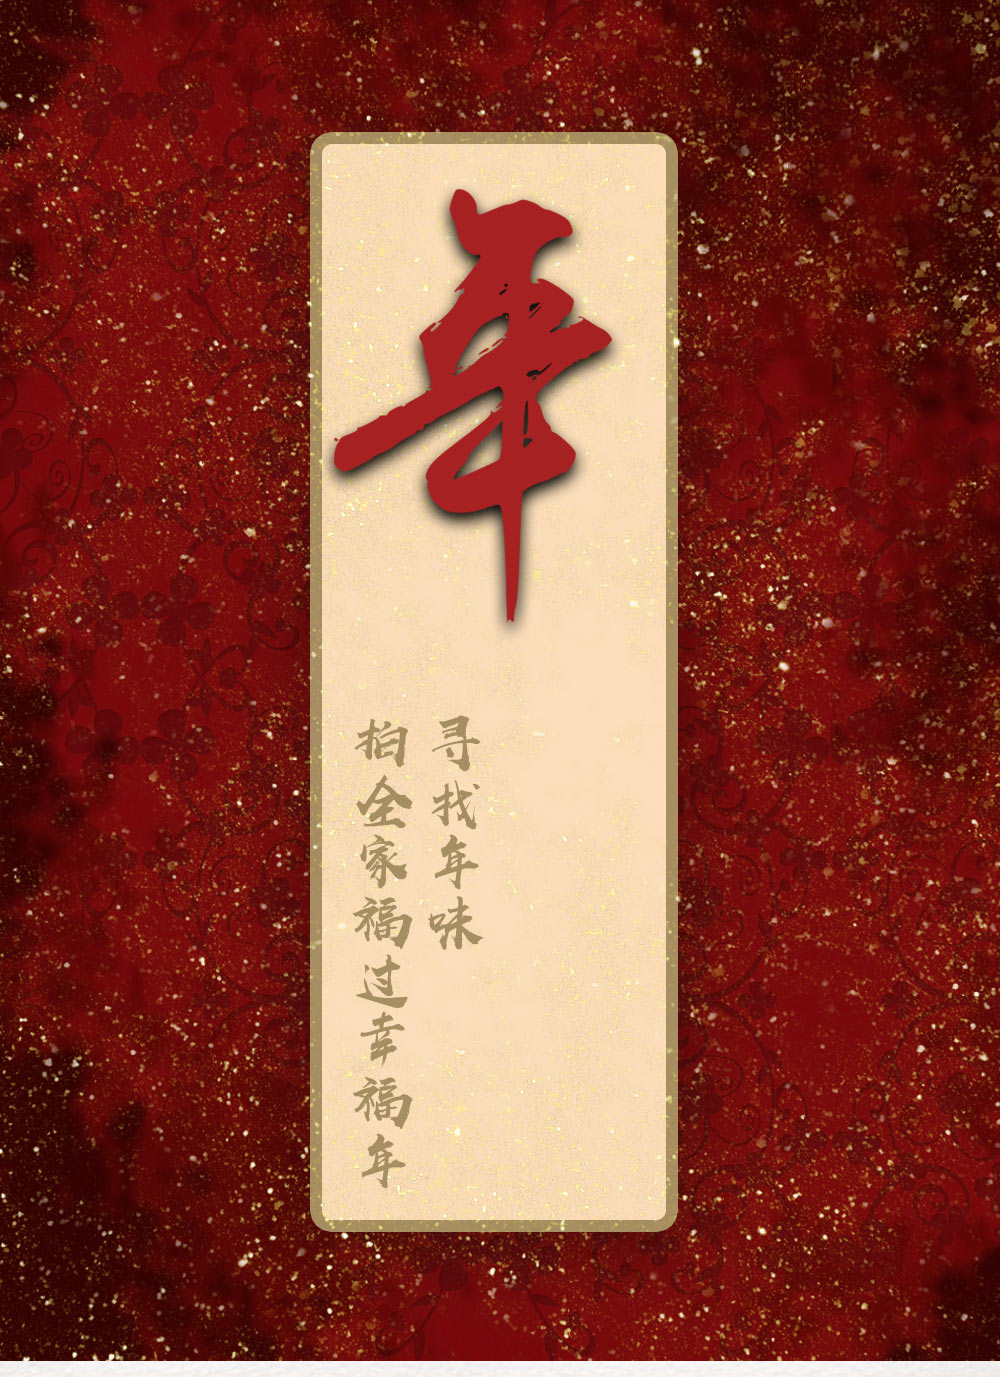 年
寻找年味
拍全家福过幸福年